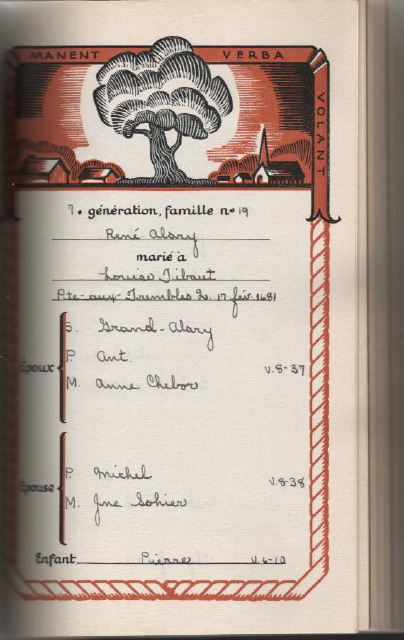 MANENT VERBA VOLANT
7. génération, famille no 19
René Alary
marié à
Louise Tibaut
Pte-aux-Trembles Q. 17 fév. 1681
S. Grand-Alary
Époux P. Ant. v.8-37
M. Anne Chebor
Épouse P. Michel v.8-38
M. Jne Sohier
Enfant Pierre v.6-10